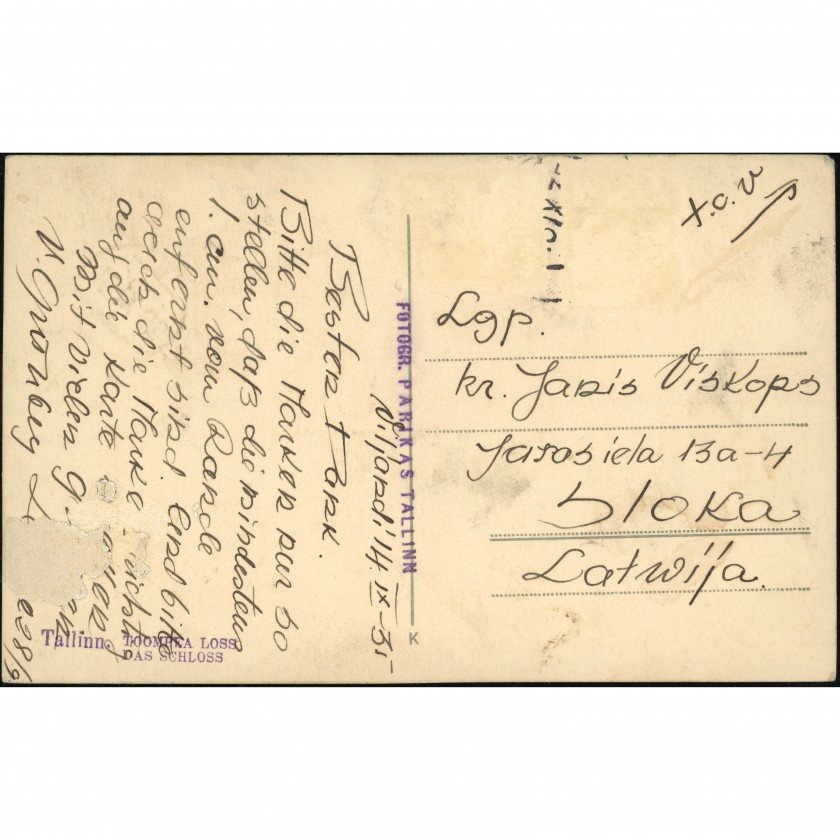 Viljandi 14 IX-35
Bester Dank.
Bitte die Marken nur so
stellen, daß die mindestens
1 cm. vom Rande
entfernt sind. Und bitte
die Marke nicht
auf die Karte
Mit vielen
V. Grönberg
FOTOGR. PARIKAS TALLINN
K
Tallinn. TOOMPEA LOSS
DAS SCHLOSS
T.C.V
Lgp.
kr. Janis Viskops
Jarosiela 13a-4
Sloka
Latwija.